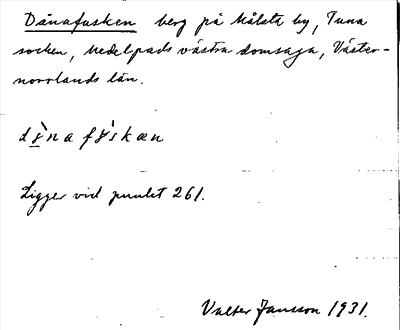 Dånafusken berg på Målsta by, Tuna
socken, Medelpads västra domsaga, Väster-
norrlands län.
Ligger vid punkt 261.
Valter Jansson 1931.